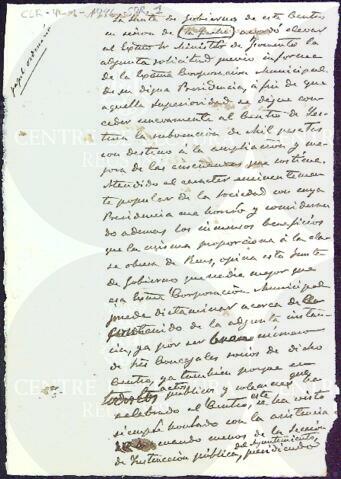 papel ordinario
La Junta de Gobierno de este Centro
en sesión de acordó elevar
al Exmo Sr Ministro de Fomento la
adjunta solicitud previo informe
de la Exma Corporación Municipal
de su digna Presidencia, á fin de que
aquella Superioridad se digne con-
ceder nuevamente al Centro de Lec-
tura la subvención de Mil pesetas
con destino á la ampliación y me-
jora de las enseñanzas que sostiene.
Atendido el carácter eminentemen-
te popular de la Sociedad con cuya
Presidencia me honro y consideran-
do además los inmensos beneficios
que la misma proporciona á la cla-
se obrera de Reus, opina esta Junta
de Gobierno que nadie mejor que
esa Exma Corporación Municipal
puede dictaminar acerca de
contenido de la adjunta instan-
cia, ya por ser
de tres Concejales socios de dicho
Centro, ya también porque en
todos los actos públicos y solemnes que ha
celebrado el Centro, este se ha visto
siempre honrado con la asistencia
cuando menos de la Sección
de Instrucción pública, del Ayuntamiento, presidiendo